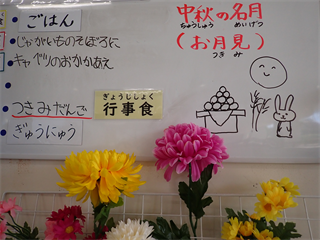 ごはん
じゃがいものそぼろに
キャベツのおかかあえ
つきみだんご
ぎゅうにゅう
ぎょうじしょく
行事食
ちゅうしゅう めいげつ
中秋の名月
(お月見)
つきみ